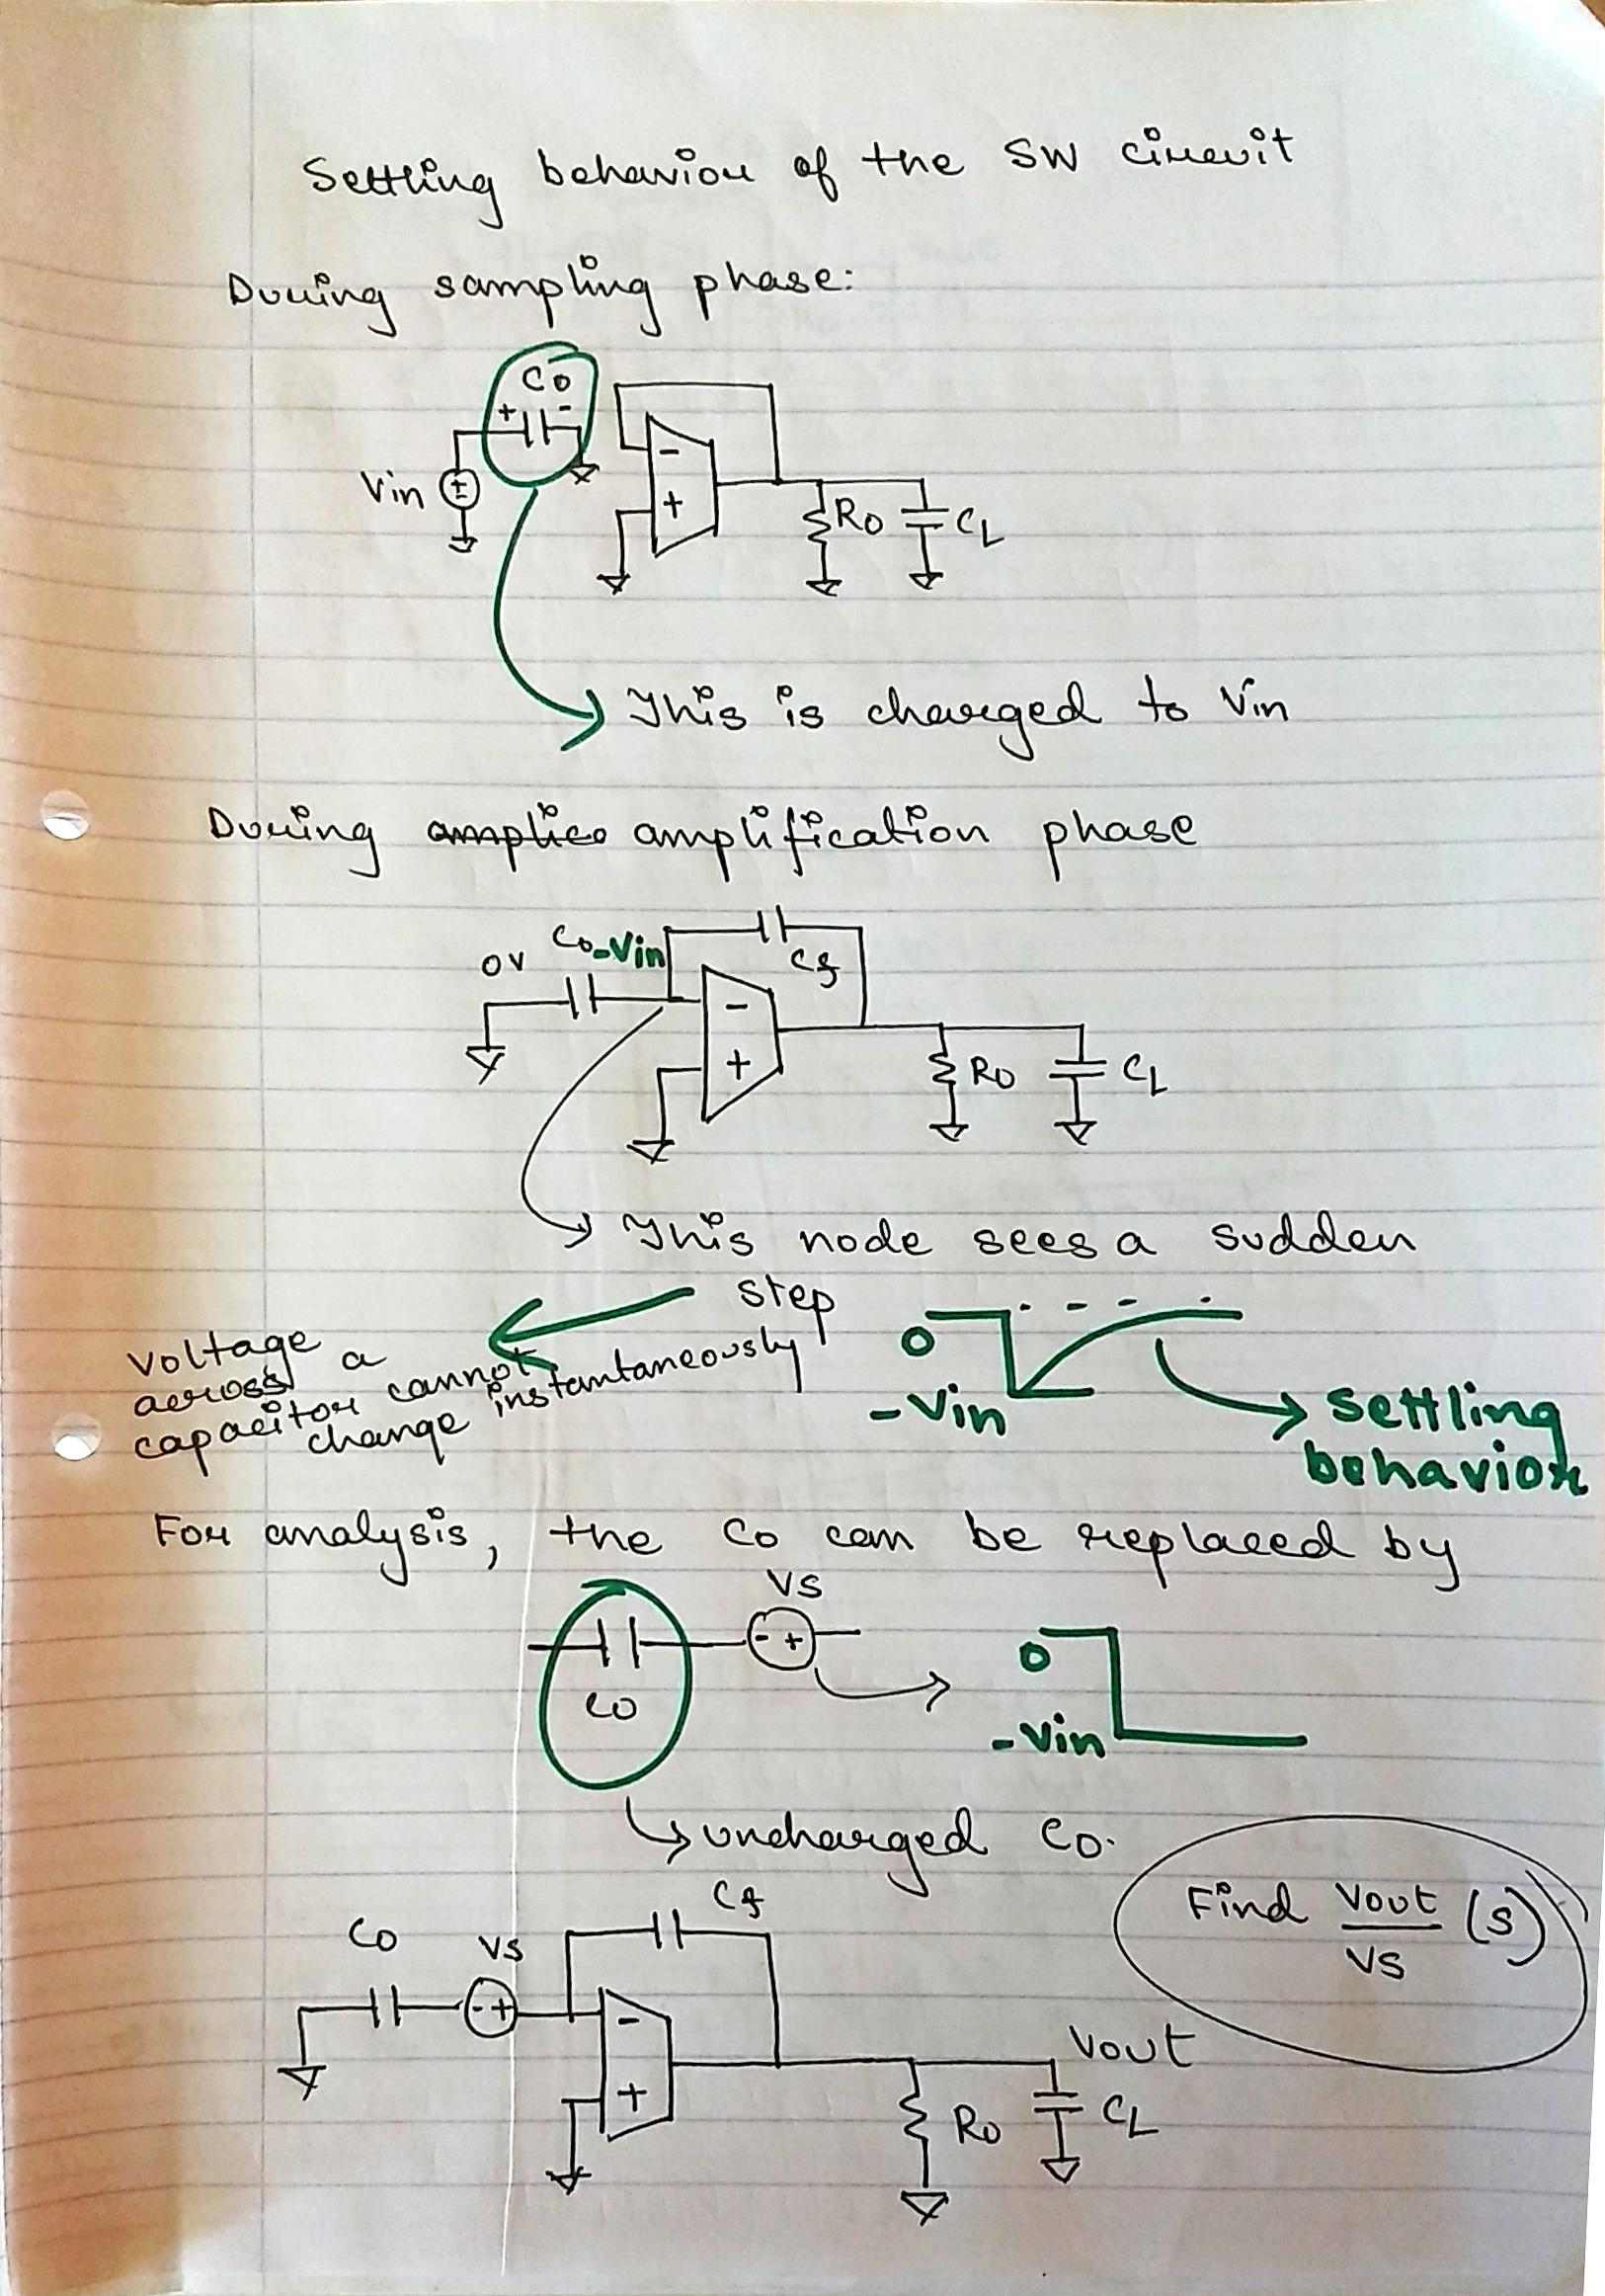 Settling behavior of the SW circuit
During sampling phase:
Co
+ -
Vin
±
-
+
Ro
CL
This is charged to Vin
During amplico amplification phase
0V
Co
-Vin
Cf
-
+
Ro
CL
This node sees a sudden
step
voltage
across a
capacitor cannot
change instantaneously
0
-Vin
Settling
behavior
For analysis, the Co can be replaced by
Vs
- +
Co
0
-Vin
uncharged Co.
Find Vout/Vs (s)
Cf
Co
Vs
- +
-
+
Vout
Ro
CL